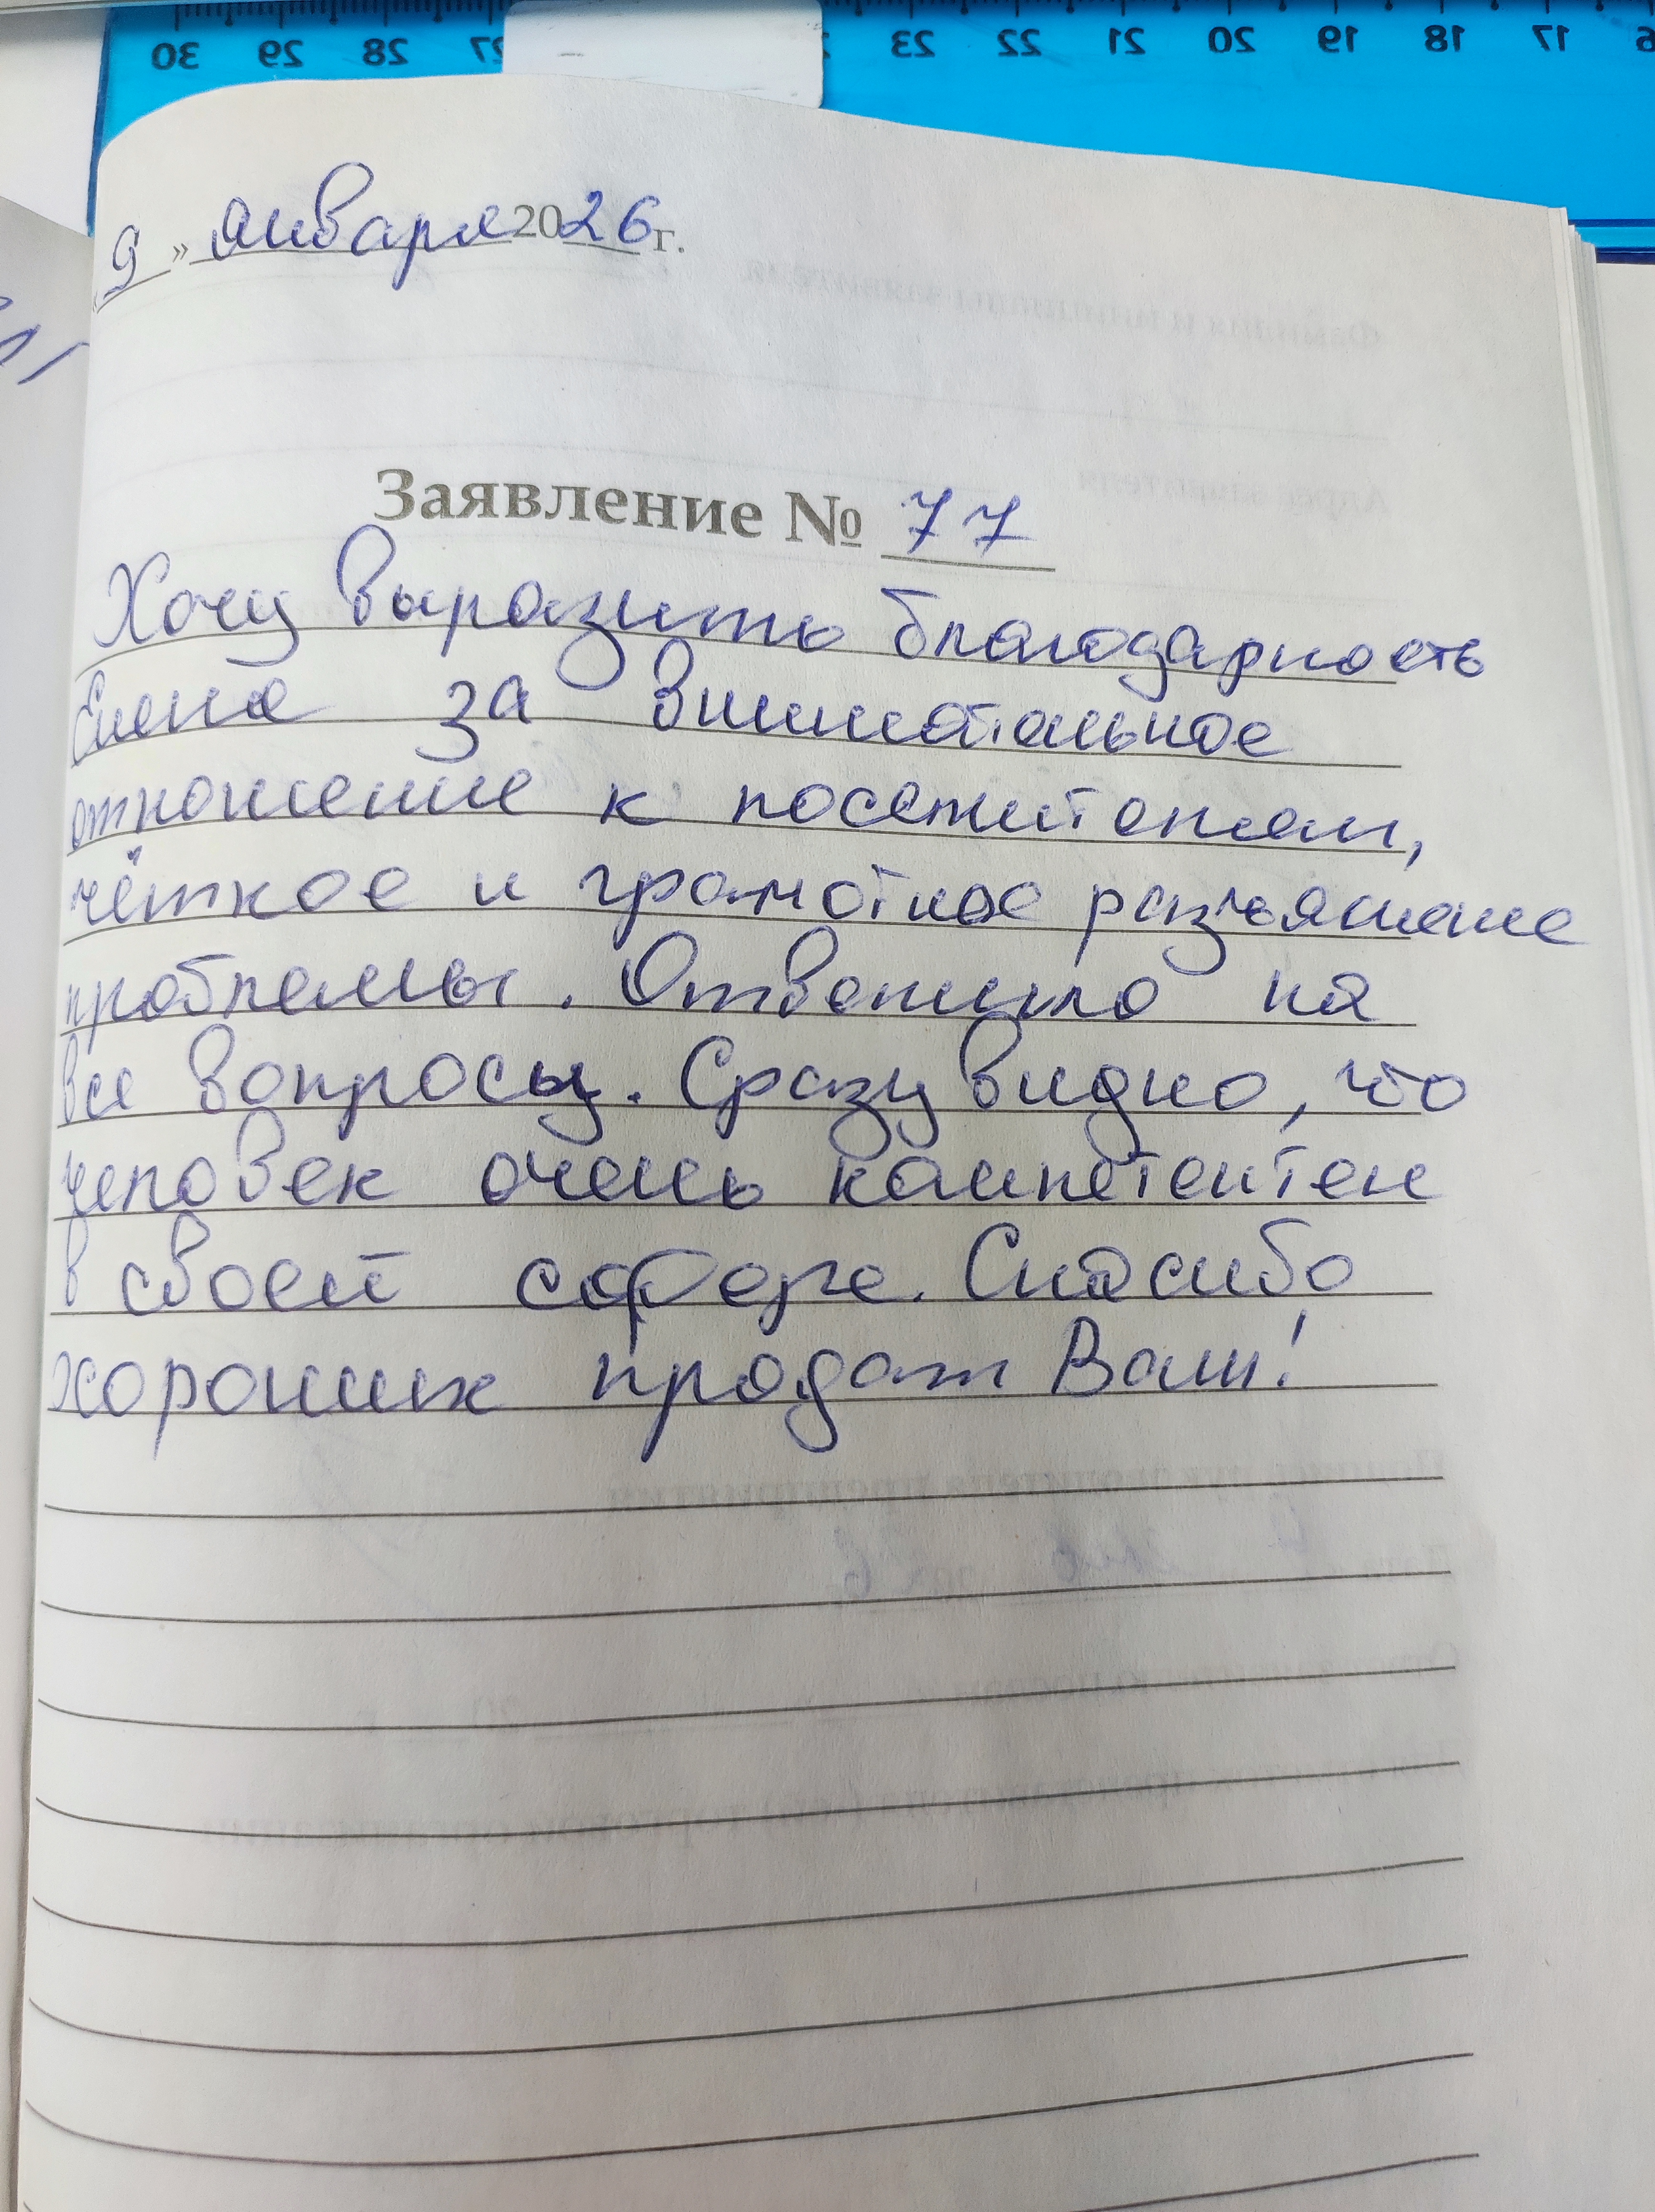 30 29 28 27 23 22 21 20 19 18 17
«9» января 2026 г.
Заявление № 77
Хочу выразить благодарность
Елене за внимательное
отношение к посетителям,
чёткое и грамотное разъяснение
проблемы. Ответила на
все вопросы. Сразу видно, что
человек очень компетентен
в своей сфере. Спасибо
хороших продаж Вам!